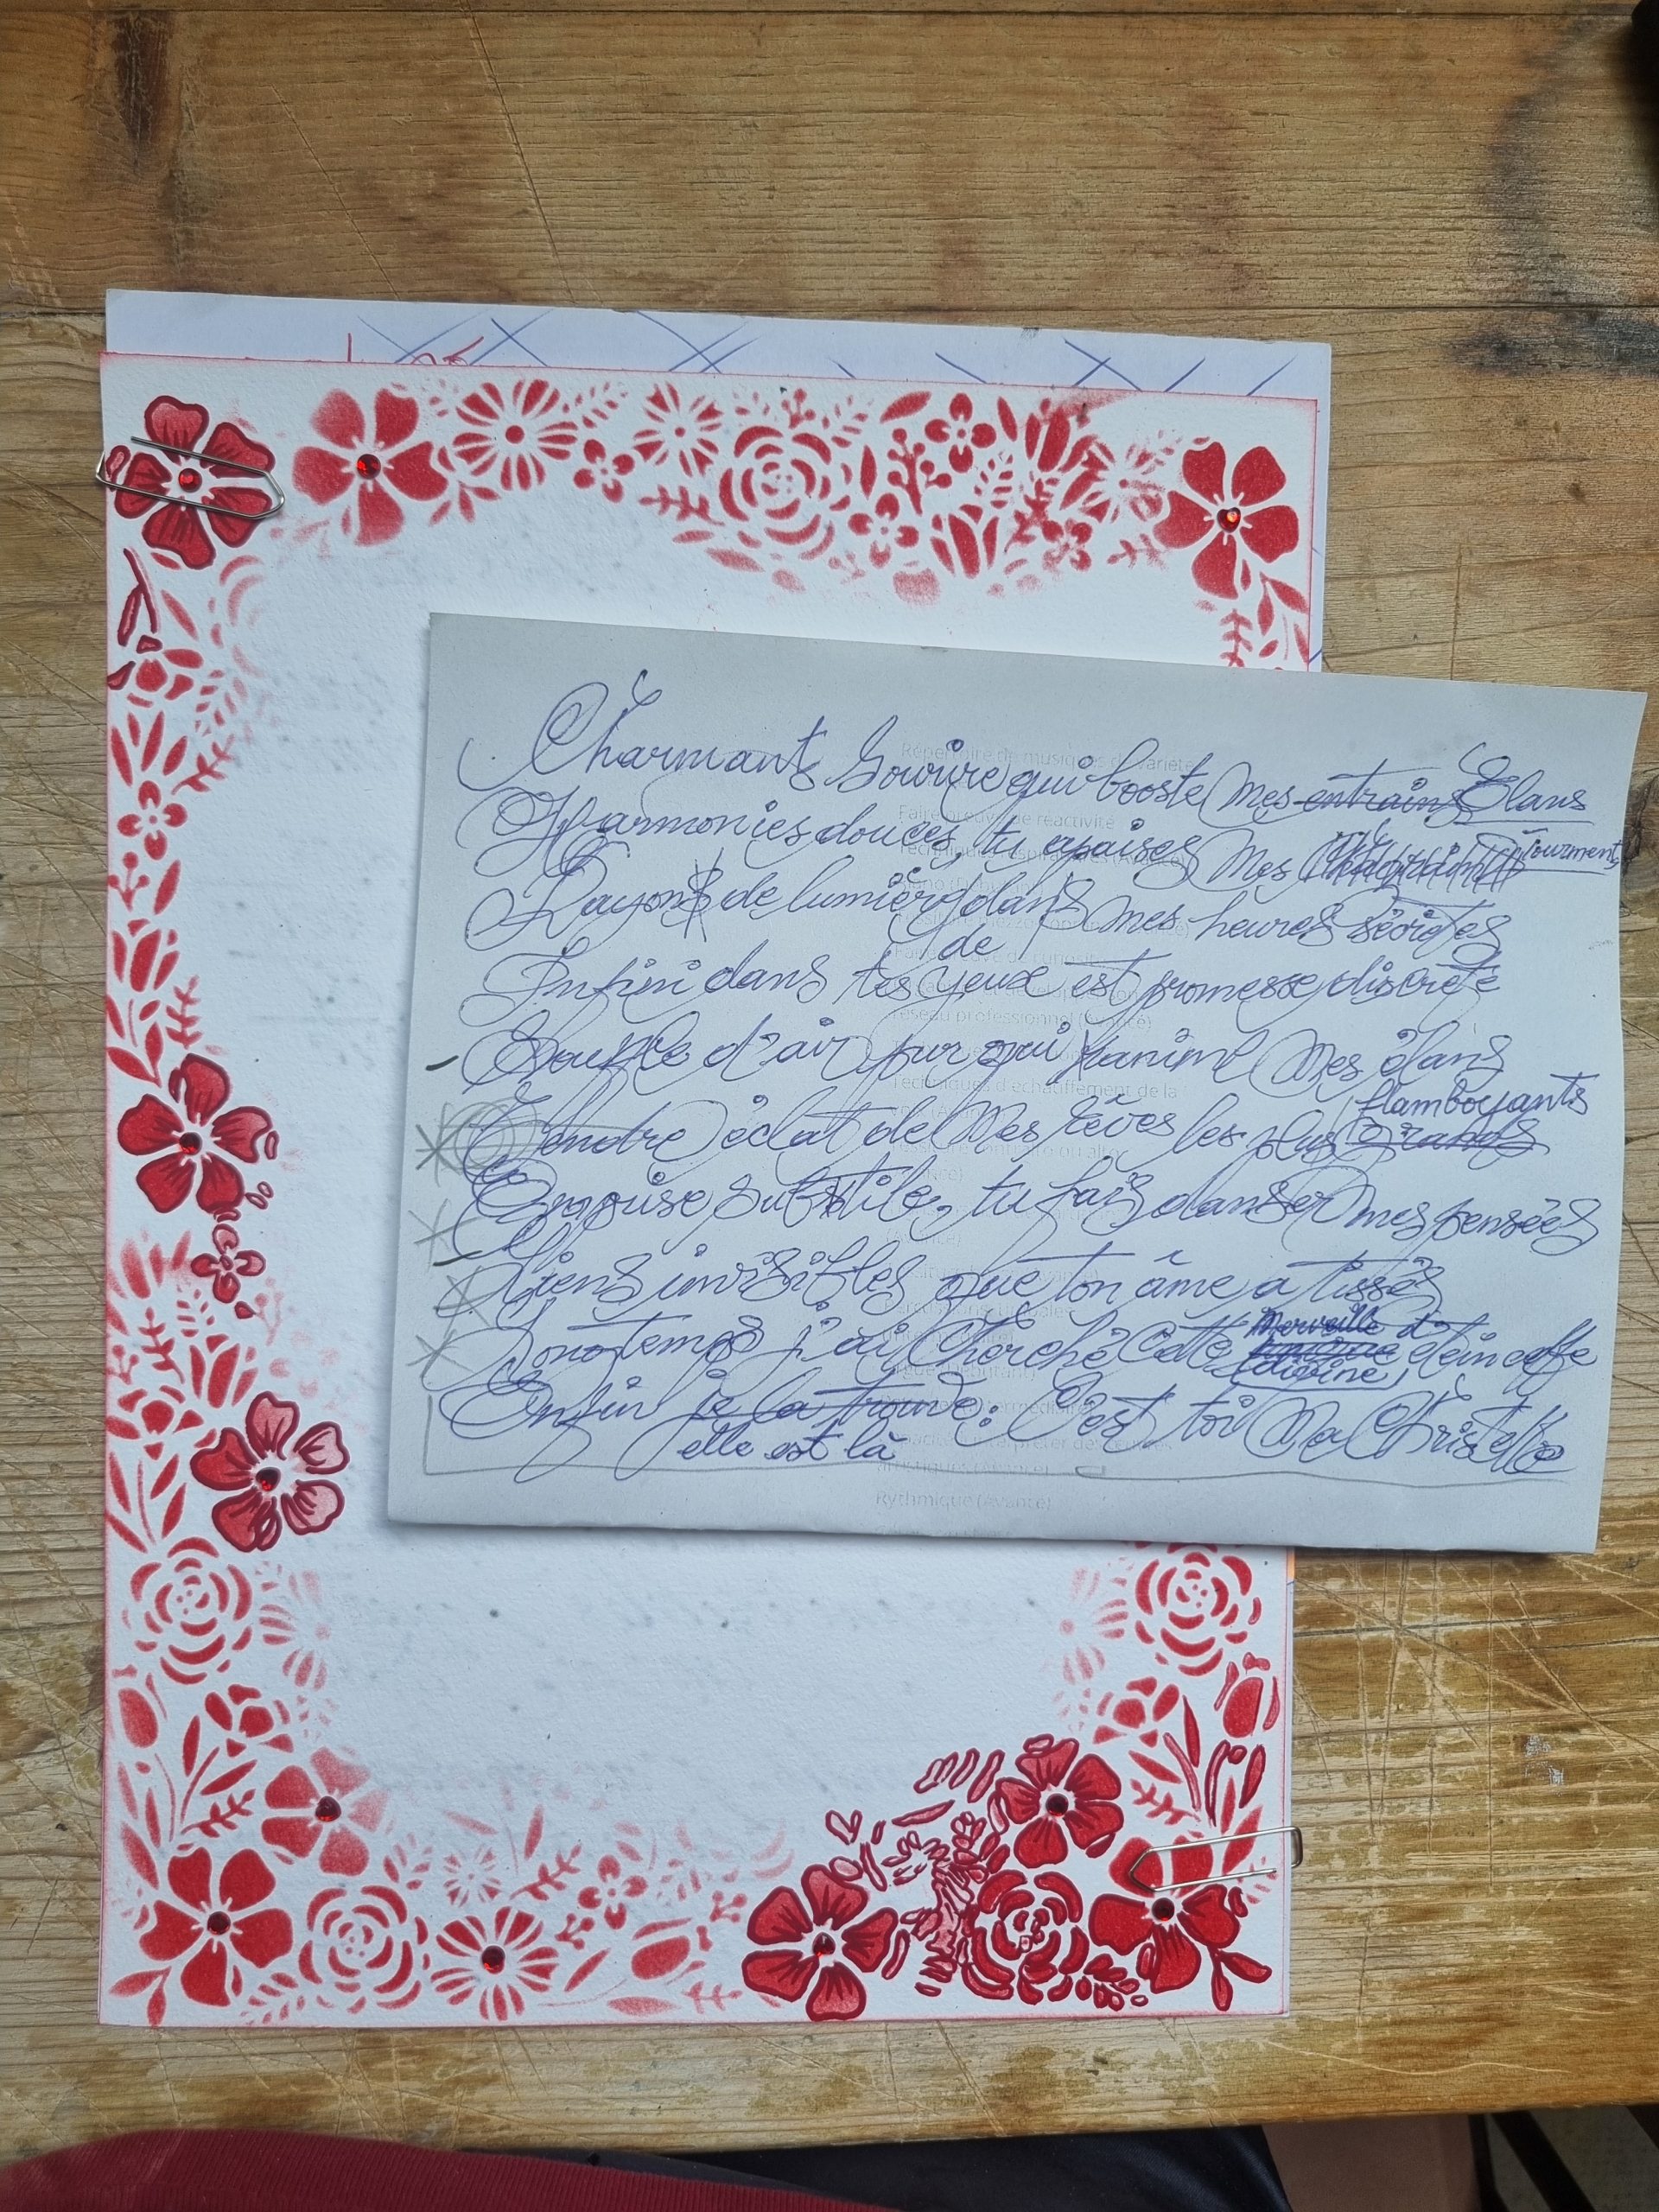 Charmant Sourire qui booste Mes entrains Élans
Harmonies douces, tu apaises Mes Tourments
Rayons de lumière dans Mes heures secrètes
de
Infini dans tes yeux est promesse discrète
Souffle d'air pur qui ranime Mes élans
flamboyants
Tendre éclat de Mes rêves les plus grands
Exquise subtile, tu fais danser mes pensées
Liens invisibles que ton âme a tissés
Merveille d'
Longtemps j'ai Cherché Cette
divine,
Enfin je la trouve : C'est toi Ma Christelle
elle est là
Répertoire de musiques de variété
Faire preuve de réactivité
réseau professionnel (Avancé)
Techniques d'échauffement de la
Rythmique (Avancé)